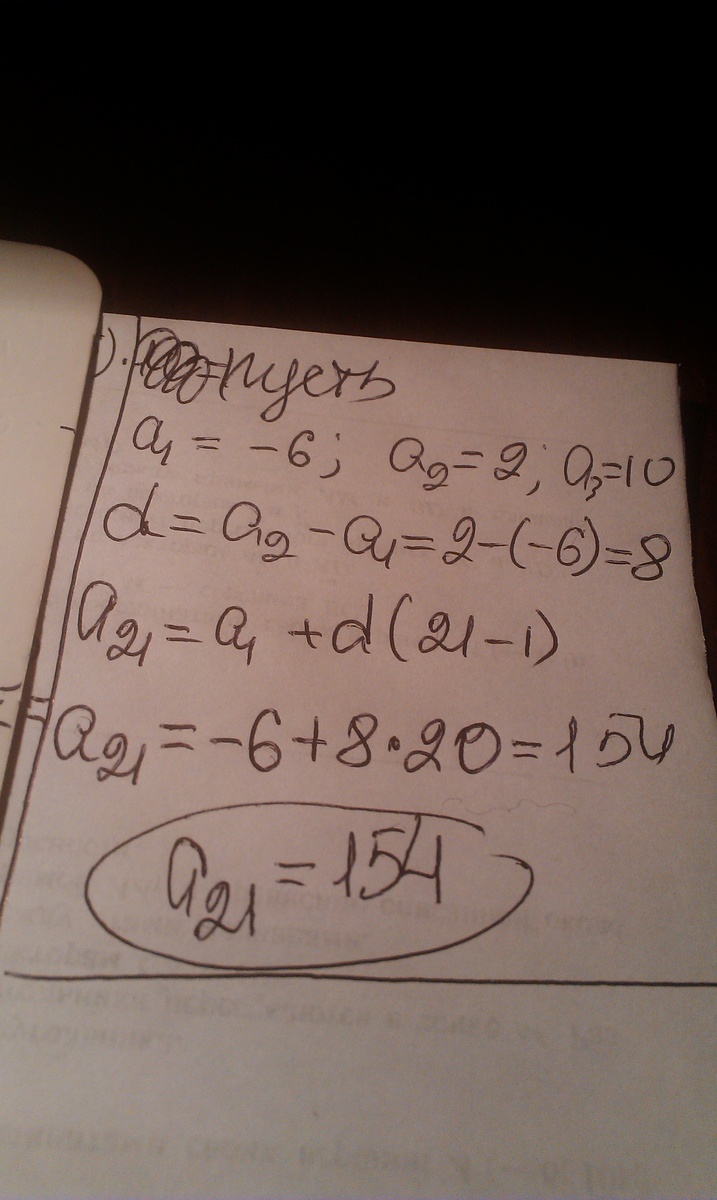 ). пусть
a₁ = -6; a₂ = 2; a₃=10
d = a₂ - a₁ = 2-(-6)=8
a₂₁ = a₁ + d(21-1)
a₂₁ = -6+8·20=154
a₂₁ = 154